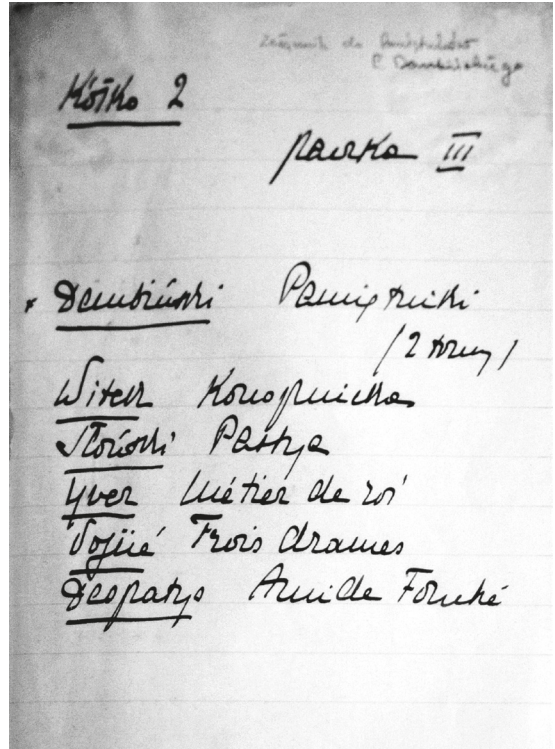 Załącznik do Pamiętników
P. Dembińskiego
Kółko 2
paczka III
× Dembiński Pamiętniki
/2 tomy/
Witek Konopnicka
Słoński Partja
Yver Métier de roi
Vogüé Trois drames